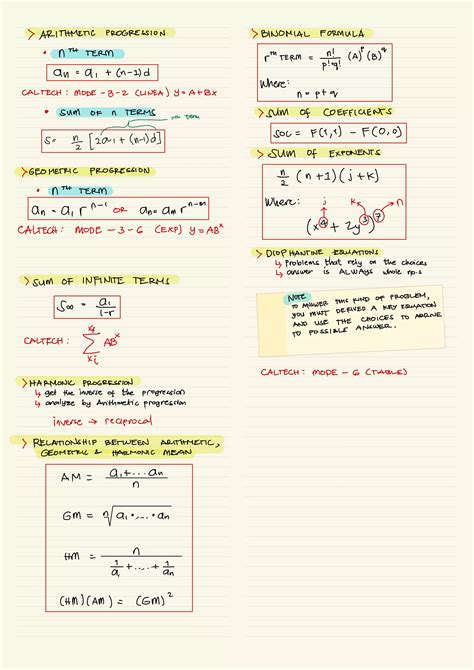 > ARITHMETIC PROGRESSION
• nTH TERM
an = a1 + (n-1)d
CALTECH : MODE - 3 - 2 (LINEA) y = A+BX
• SUM OF n TERMS
nth TERM
S = n/2 [2a1 + (n-1)d]
> GEOMETRIC PROGRESSION
• nTH TERM
an = a1 r^n-1 OR an = am r^n-m
CALTECH : MODE - 3 - 6 (EXP) y = AB^x
> SUM OF INFINITE TERMS
S∞ = a1/1-r
CALTECH : x4 Σ xi AB^x
> HARMONIC PROGRESSION
↳ get the inverse of the progression
↳ analyze by Arithmetic progression
inverse → reciprocal
> RELATIONSHIP BETWEEN ARITHMETIC,
GEOMETRIC & HARMONIC MEAN
AM = a1+... an / n
GM = n√a1 · ... · an
HM = n / 1/a1 + ... + 1/an
(HM)(AM) = (GM)^2
> BINOMIAL FORMULA
rth TERM = n!/p!q! (A)^p (B)^q
Where:
n = p + q
> SUM OF COEFFICIENTS
SOC = F(1,1) - F(0,0)
> SUM OF EXPONENTS
n/2 (n+1)(j+k)
Where: j k n
(x^4 + 2y^3)^7
> DIOPHANTINE EQUATIONS
↳ Problems that rely on the choices
↳ answer is ALWAYS whole no.s
NOTE
TO ANSWER THIS KIND OF PROBLEM,
YOU MUST DERIVED A KEY EQUATION
AND USE THE CHOICES TO ARRIVE
TO POSSIBLE ANSWER.
CALTECH: MODE - 6 (TABLE)